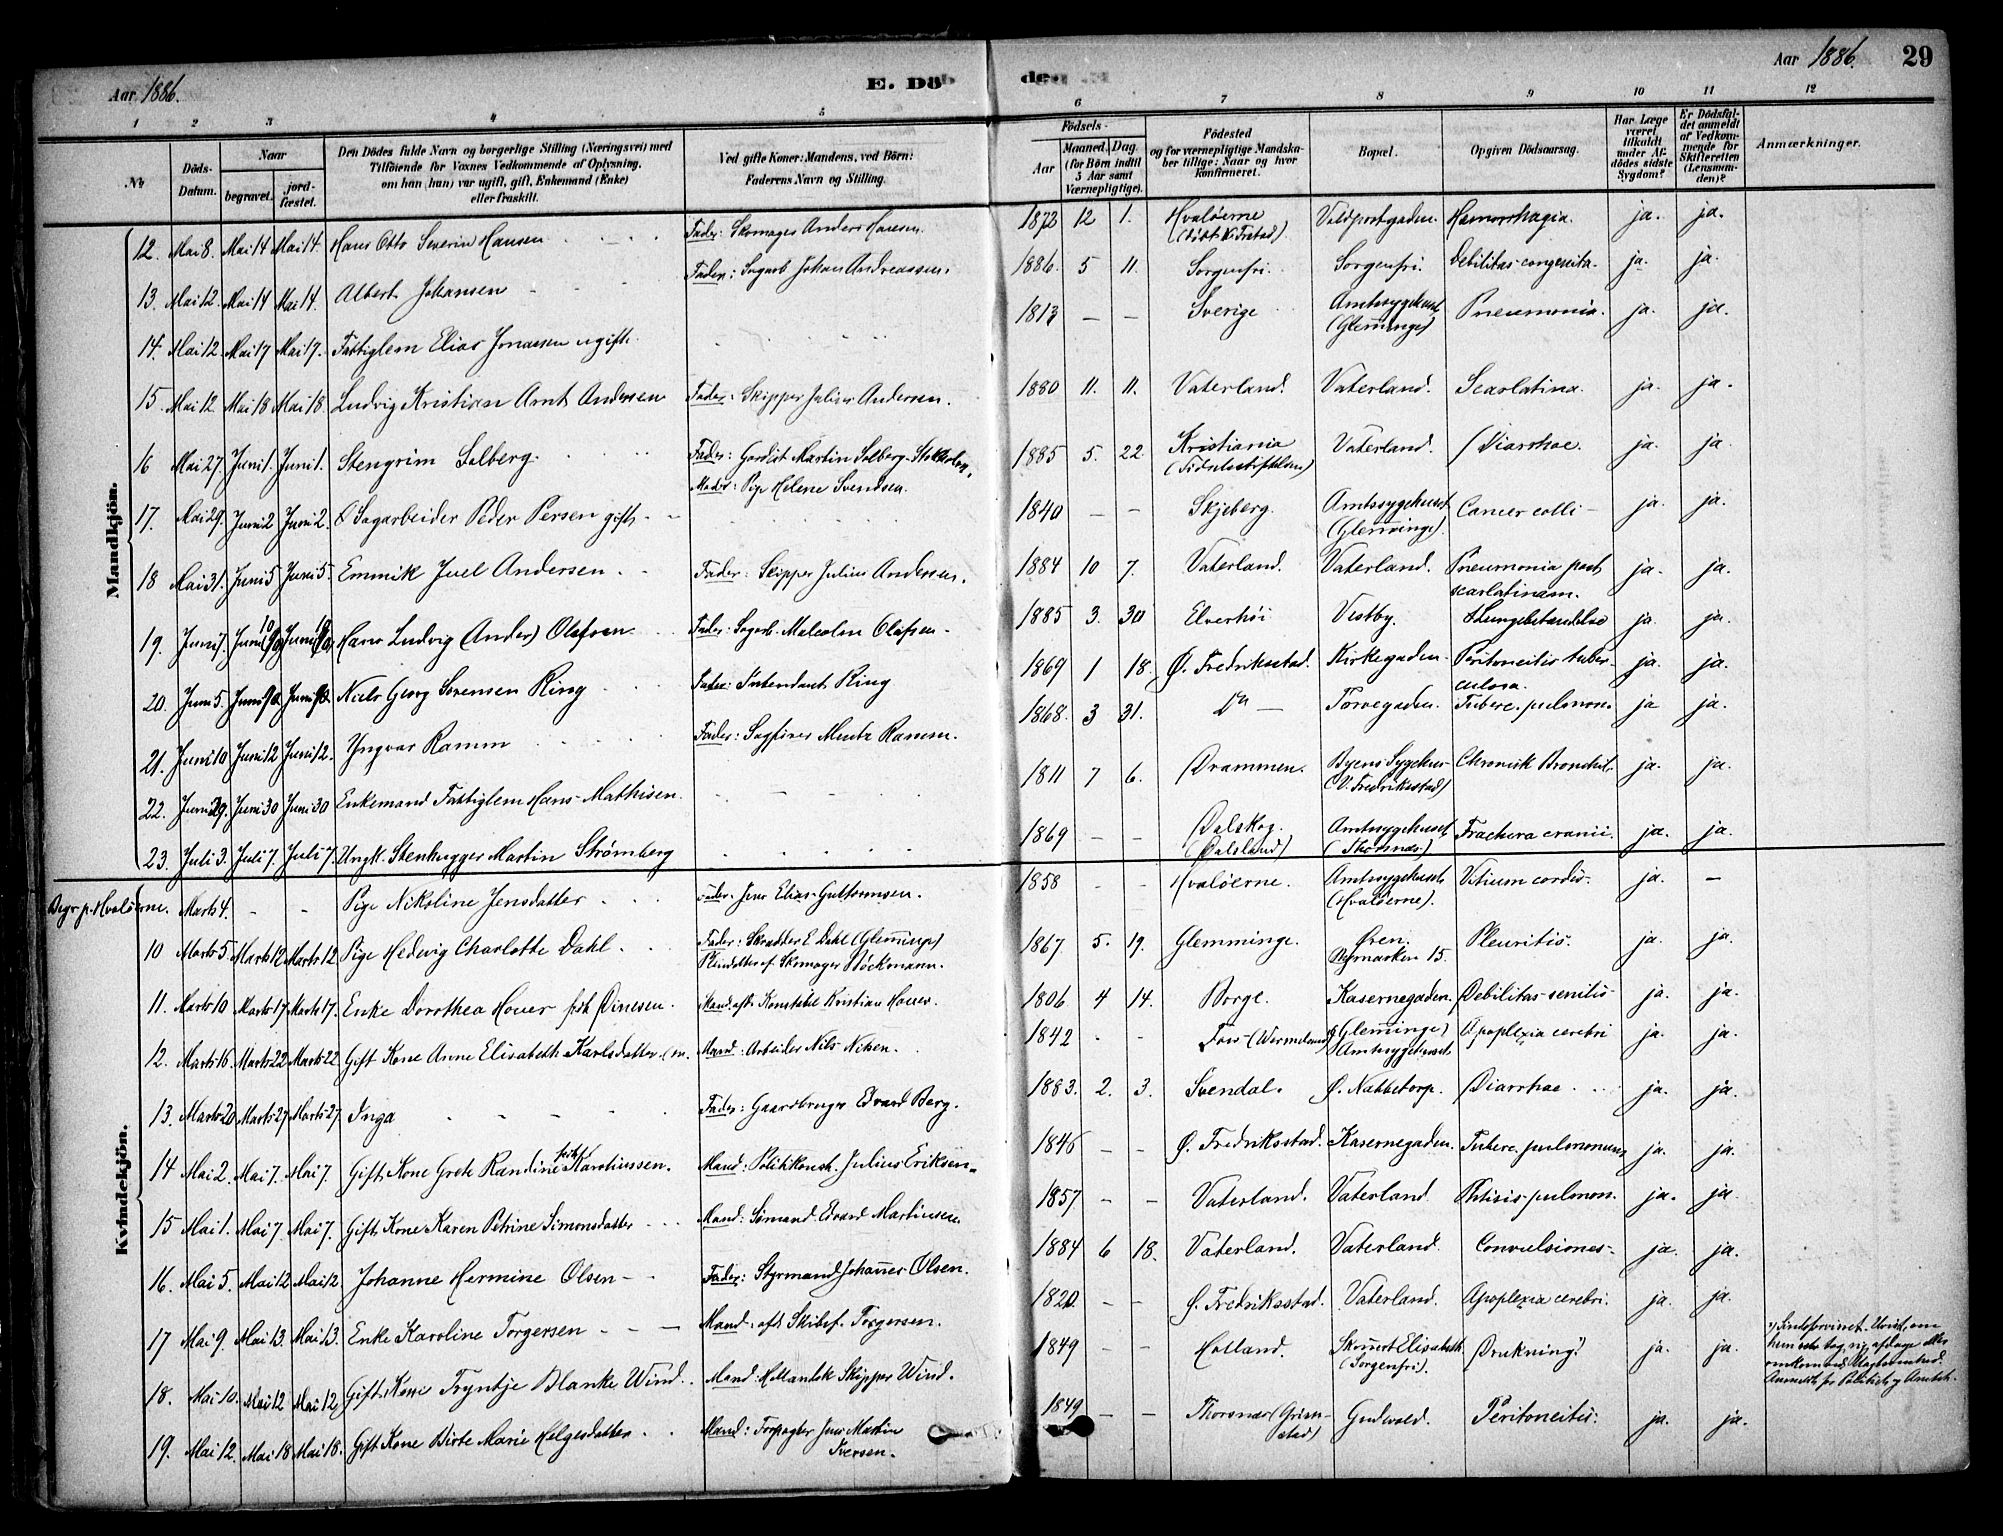 Aar 1886.
E. Dö
Aar 1886. 29
1 2 3 4 5 6 7 8 9 10 11 12
No
Döds-Datum.
Naar
begravet.
jordfæstet.
Den Dödes fulde Navn og borgerlige Stilling (Næringsvei) med
Tilföiende for Voxnes Vedkommende af Oplysning,
om han (hun) var ugift, gift, Enkemand (Enke)
eller fraskilt.
Ved gifte Koner: Mandens, ved Börn:
Faderens Navn og Stilling.
Födsels-
Aar
Maaned. Dag.
(for Börn indtil
5 Aar samt
Værnepligtige).
Födested
og for værnepligtige Mandskaber tillige: Naar og hvor
konfirmeret.
Bopæl.
Opgiven Dödsaarsag.
Har Læge
været
tilkaldt
under Afdödes sidste
Sygdom?
Er Dödsfaldet anmeldt
af Vedkommende for
Skifteretten
(Lensmanden)?
Anmærkninger.
Mandkjön.
12. Mai 8. Mai 14 Mai 14. Hans Otto Severin Hansen Fader: Skomager Anders Hansen. 1872 12 1. Hvaløerne Voldportgaden. Hæmorrhagia. ja. ja.
13. Mai 12. Mai 14 Mai 14. Albert Johansen Fader: Sagarb. Johan Andreassen. 1886. 5 11. Sorgenfri. Sorgenfri. Debilitas congenita. ja. ja.
14. Mai 12. Mai 17 Mai 17. Fattiglem Elias Jonassen ugift. 1813 — — Sverige Amtssygehuset (Glemminge) Pneumonia. ja. ja.
15. Mai 12. Mai 18 Mai 18. Ludvig Kristian Arnt Andersen Fader: Skipper Julius Andersen. 1880 11. 11. Vaterland. Vaterland. Scarlatina. ja. ja.
16 Mai 27. Juni 1. Juni 1. Stengrim Solberg. Fader: Gardist Martin Solberg. Stokholm,
Moder: Pige Helene Svendsen. 1885 5. 22. Kristiania Vaterland. Diarrhoe. ja. ja
17. Mai 29. Juni 2 Juni 2. Sagarbeider Peder Persen gift. 1840 — — Skjeberg. Amtssygehuset (Glemminge). Cancer colli — ja. ja.
18 Mai 31. Juni 5 Juni 5. Emmik Juel Andersen. Fader: Skipper Julius Andersen. 1884 10 7. Vaterland. Vaterland. Pneumonia post
scarlatinam. ja. ja.
19. Juni 1. Juni 10 Juni 10 Hans Ludvig (Ander) Olafsen. Fader: Sagarb. Malcolm Olafsen. 1885 3. 30 Elverhöi Vestby. Lungebetændelse ja. ja.
20. Juni 5. Niels Georg Sörensen Ring Fader: Intendant Ring 1869 1 18. Ø. Fredriksstad. Kirkegaden. Peritoneitis tuberculosa. ja. ja.
21. Juni 10 Juni 12 Juni 12. Yngvar Ramm Fader: Sagfører Mentz Ramm. 1868. 3 31. Do — Torvegaden. Tuberc. pulmon. ja ja.
22. Juni 29. Juni 30 Juni 30 Enkemand Fattiglem Hans Mathisen. 1811 7 6. Drammen. Byens Sygehus (V. Fredriksstad) Chronisk Bronchit. ja. ja.
23. Juli 3. Juli 7. Juli 7. Ungk. Stenhugger Martin Strømberg 1869 — — Dalskog. (Dalsland) Amtssygehuset (Thorsnæs) Fractura cranii. ja. ja.
Kvindekjön.
Begr. p. Hvaløerne. Marts 4. Pige Nikoline Jensdatter Fader: Jens Elias Guttormsen. 1858 - - Hvaløerne. Amtssygehuset (Hvaløerne). Vitium cordis. ja. —
10 Marts 5. Marts 12 Marts 12. Pige Hedvig Charlotte Dahl. Fader: Skrædder E. Dahl (Glemminge)
Pleiedatter af Skomager Böckmann. 1867 5. 19. Glemminge. Øren. Bymarken 15. Pleuritis. ja. ja.
11. Marts 10 Marts 17 Marts 17. Enke Dorothea Hover født Dinesen. Mand: aft. Konstabel Kristian Hover. 1806 4 14. Borge. Kasernegaden. Debilitas senilis ja. ja.
12. Marts 16. Marts 22 Marts 22 Gift Kone Anne Elisabeth Karlsdatter Mand: Arbeider Nils Nilsen. 1842 - - (Wermeland) (Glemminge) Amtssygehuset Apoplexia cerebri ja. ja.
13. Marts 20 Marts 27 Marts 27. Inga Fader: Gaardbruger Edvard Berg. 1883. 2. 3. Svendal. Ø. Nabbetorp. Diarrhoe. ja. ja.
14 Mai 2. Mai 7. Mai 7 Gift Kone Grete Randine født Karoliussen. Mand: Politikonst. Julius Eriksen. 1846 — — Ø. Fredriksstad. Kasernegaden. Tuberc. pulmonum. ja. ja.
15 Mai 1. Mai 7 Mai 7. Gift Kone Karen Petrine Simonsdatter Mand: Sömand Edvard Martinsen 1857 — — Vaterland. Vaterland. Phtisis pulmon. ja. ja.
16. Mai 5. Mai 12 Mai 12. Johanne Hermine Olsen — Fader: Styrmand Johannes Olsen. 1884 6 18. Vaterland. Vaterland. Convulsiones. ja. ja.
17 Mai 9. Mai 13. Mai 13. Enke Karoline Torgersen Mand: aft. Skibsf. Torgersen. 1820. — — Ø. Fredriksstad. Vaterland. Apoplexia cerebri. ja. ja.
18. Mai 10. Mai 12 Mai 12. Gift Kone Tryntje Blanke Wind. Mand: Hollandsk Skipper Wind. 1849 — — Holland. Elisabeth (Sorgenfri). Drukning ja. ja.
19. Mai 12. Mai 18 Mai 18. Gift Kone Birte Marie Helgesdatter Mand: Forpagter Jens Martin
Iversen. 1849 — — Thorsnæs (Grimstad) Gudevold. Peritoneitis. ja. ja.